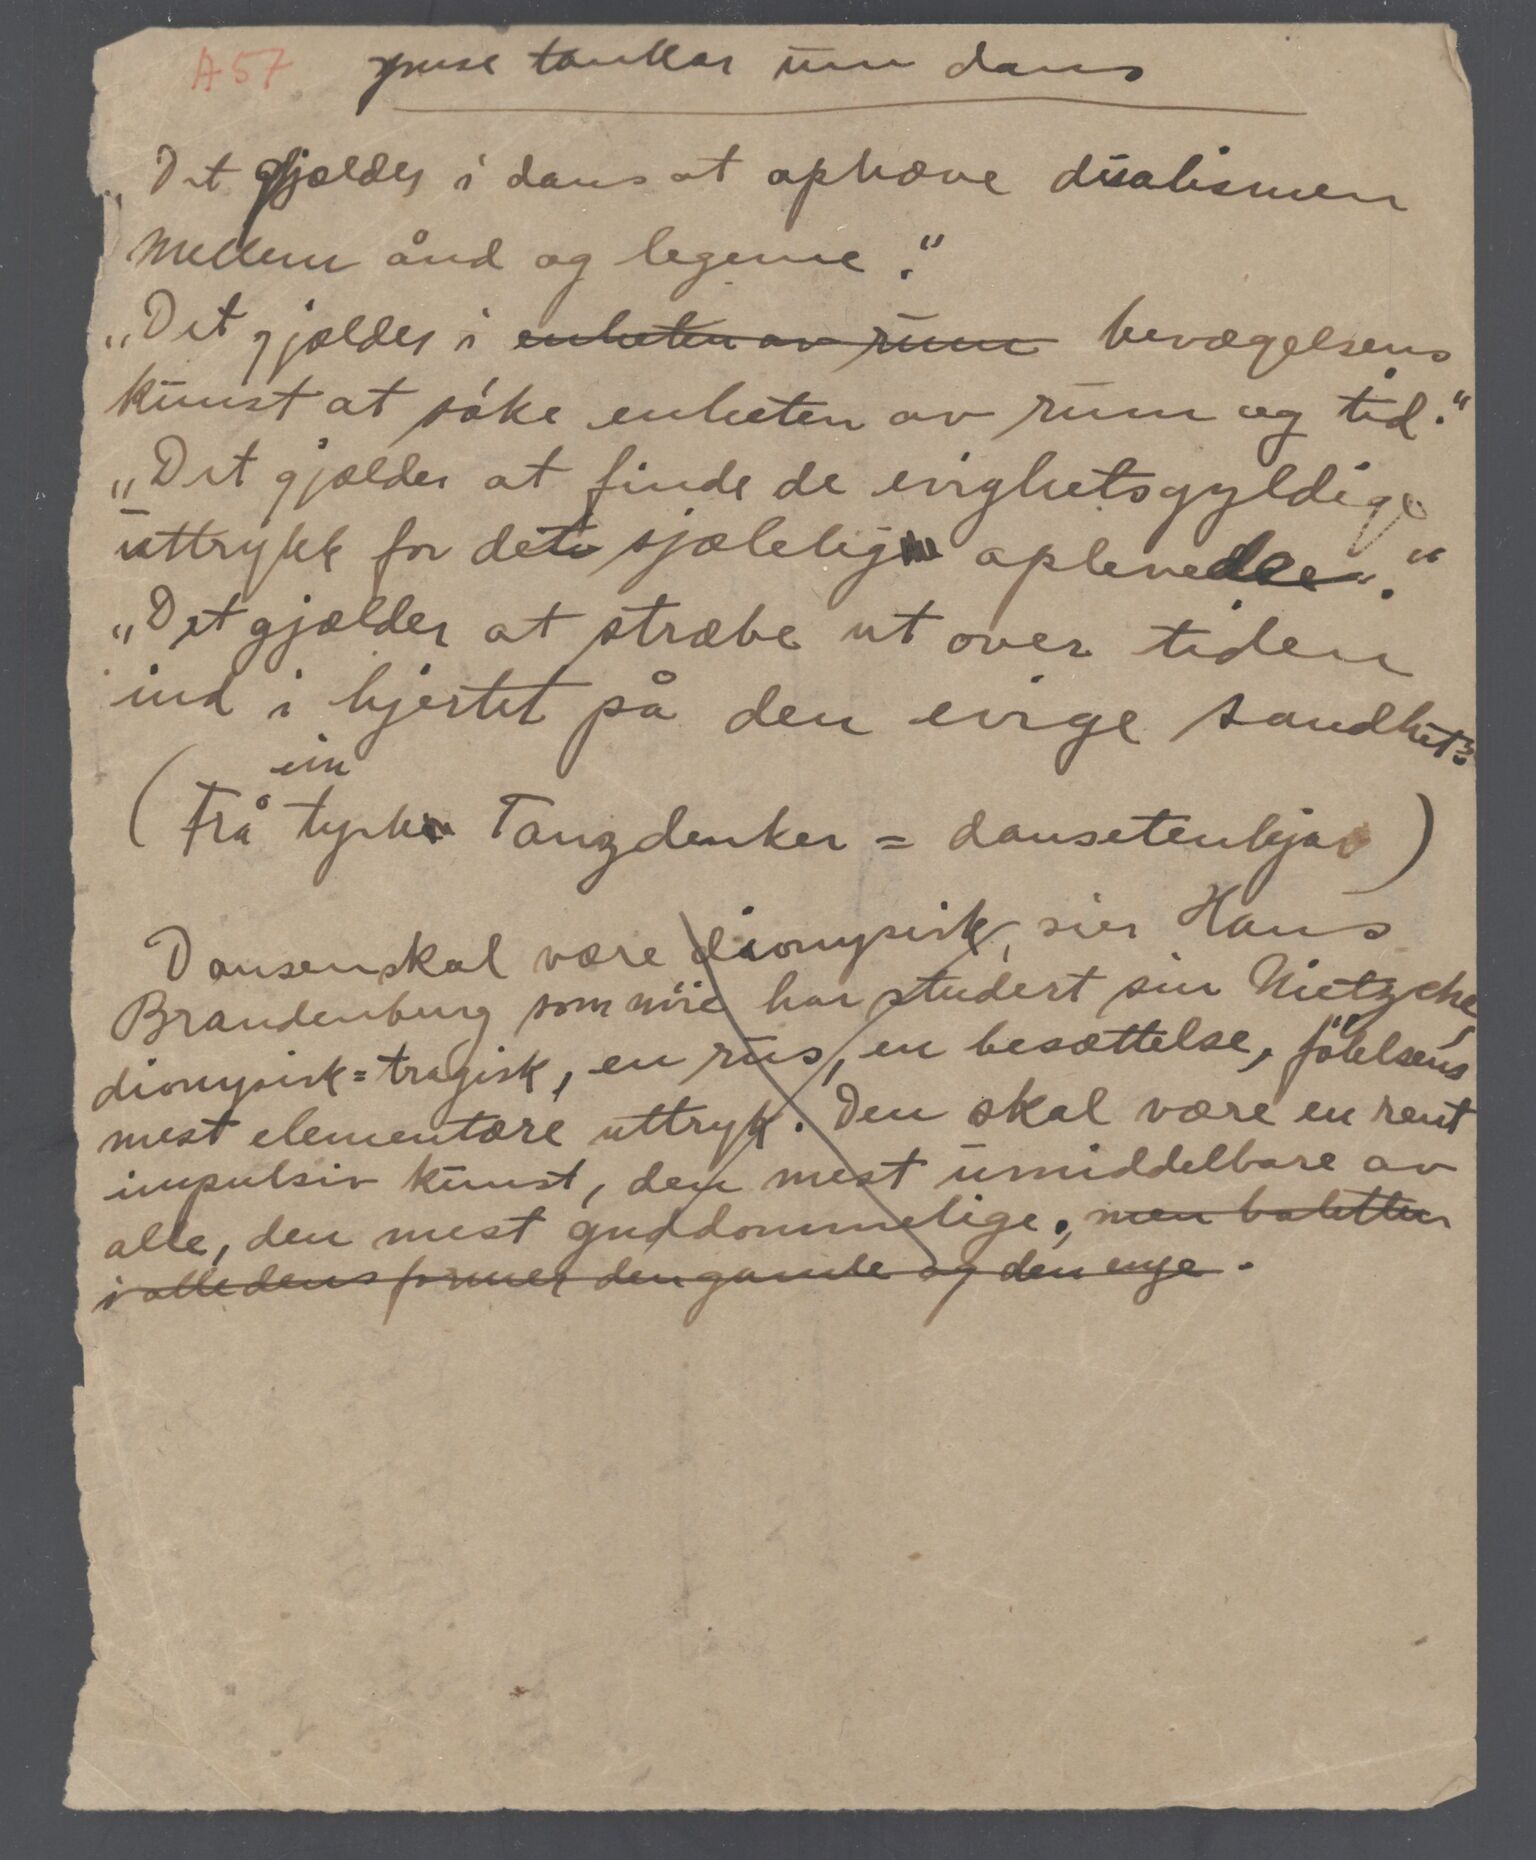 A 57 ymse tankar um dans
„Det gjælder i dans at ophæve dualismen
mellem ånd og legeme."
„Det gjælder i enheten av rum bevægelsens
kunst at söke enheten av rum og tid."
„Det gjælder at finde de evighetsgyldige
uttrykk for det sjælelig oplevede."
„Det gjælder at stræbe ut over tiden
ind i hjertet på den evige sandhet"
ein
(Frå tysk Tanzdenker = dansetenkjar)
Dansen skal være dionysisk, sier Hans
Brandenburg som nöie har studert sin Nietzche,
dionysisk = tragisk, en rus, en besættelse, fölelsens
mest elementære uttryk. Den skal være en rent
impulsiv kunst, den mest umiddelbare av
alle, den mest guddommelige, men balletten
i alle dens former den gamle og den nye.